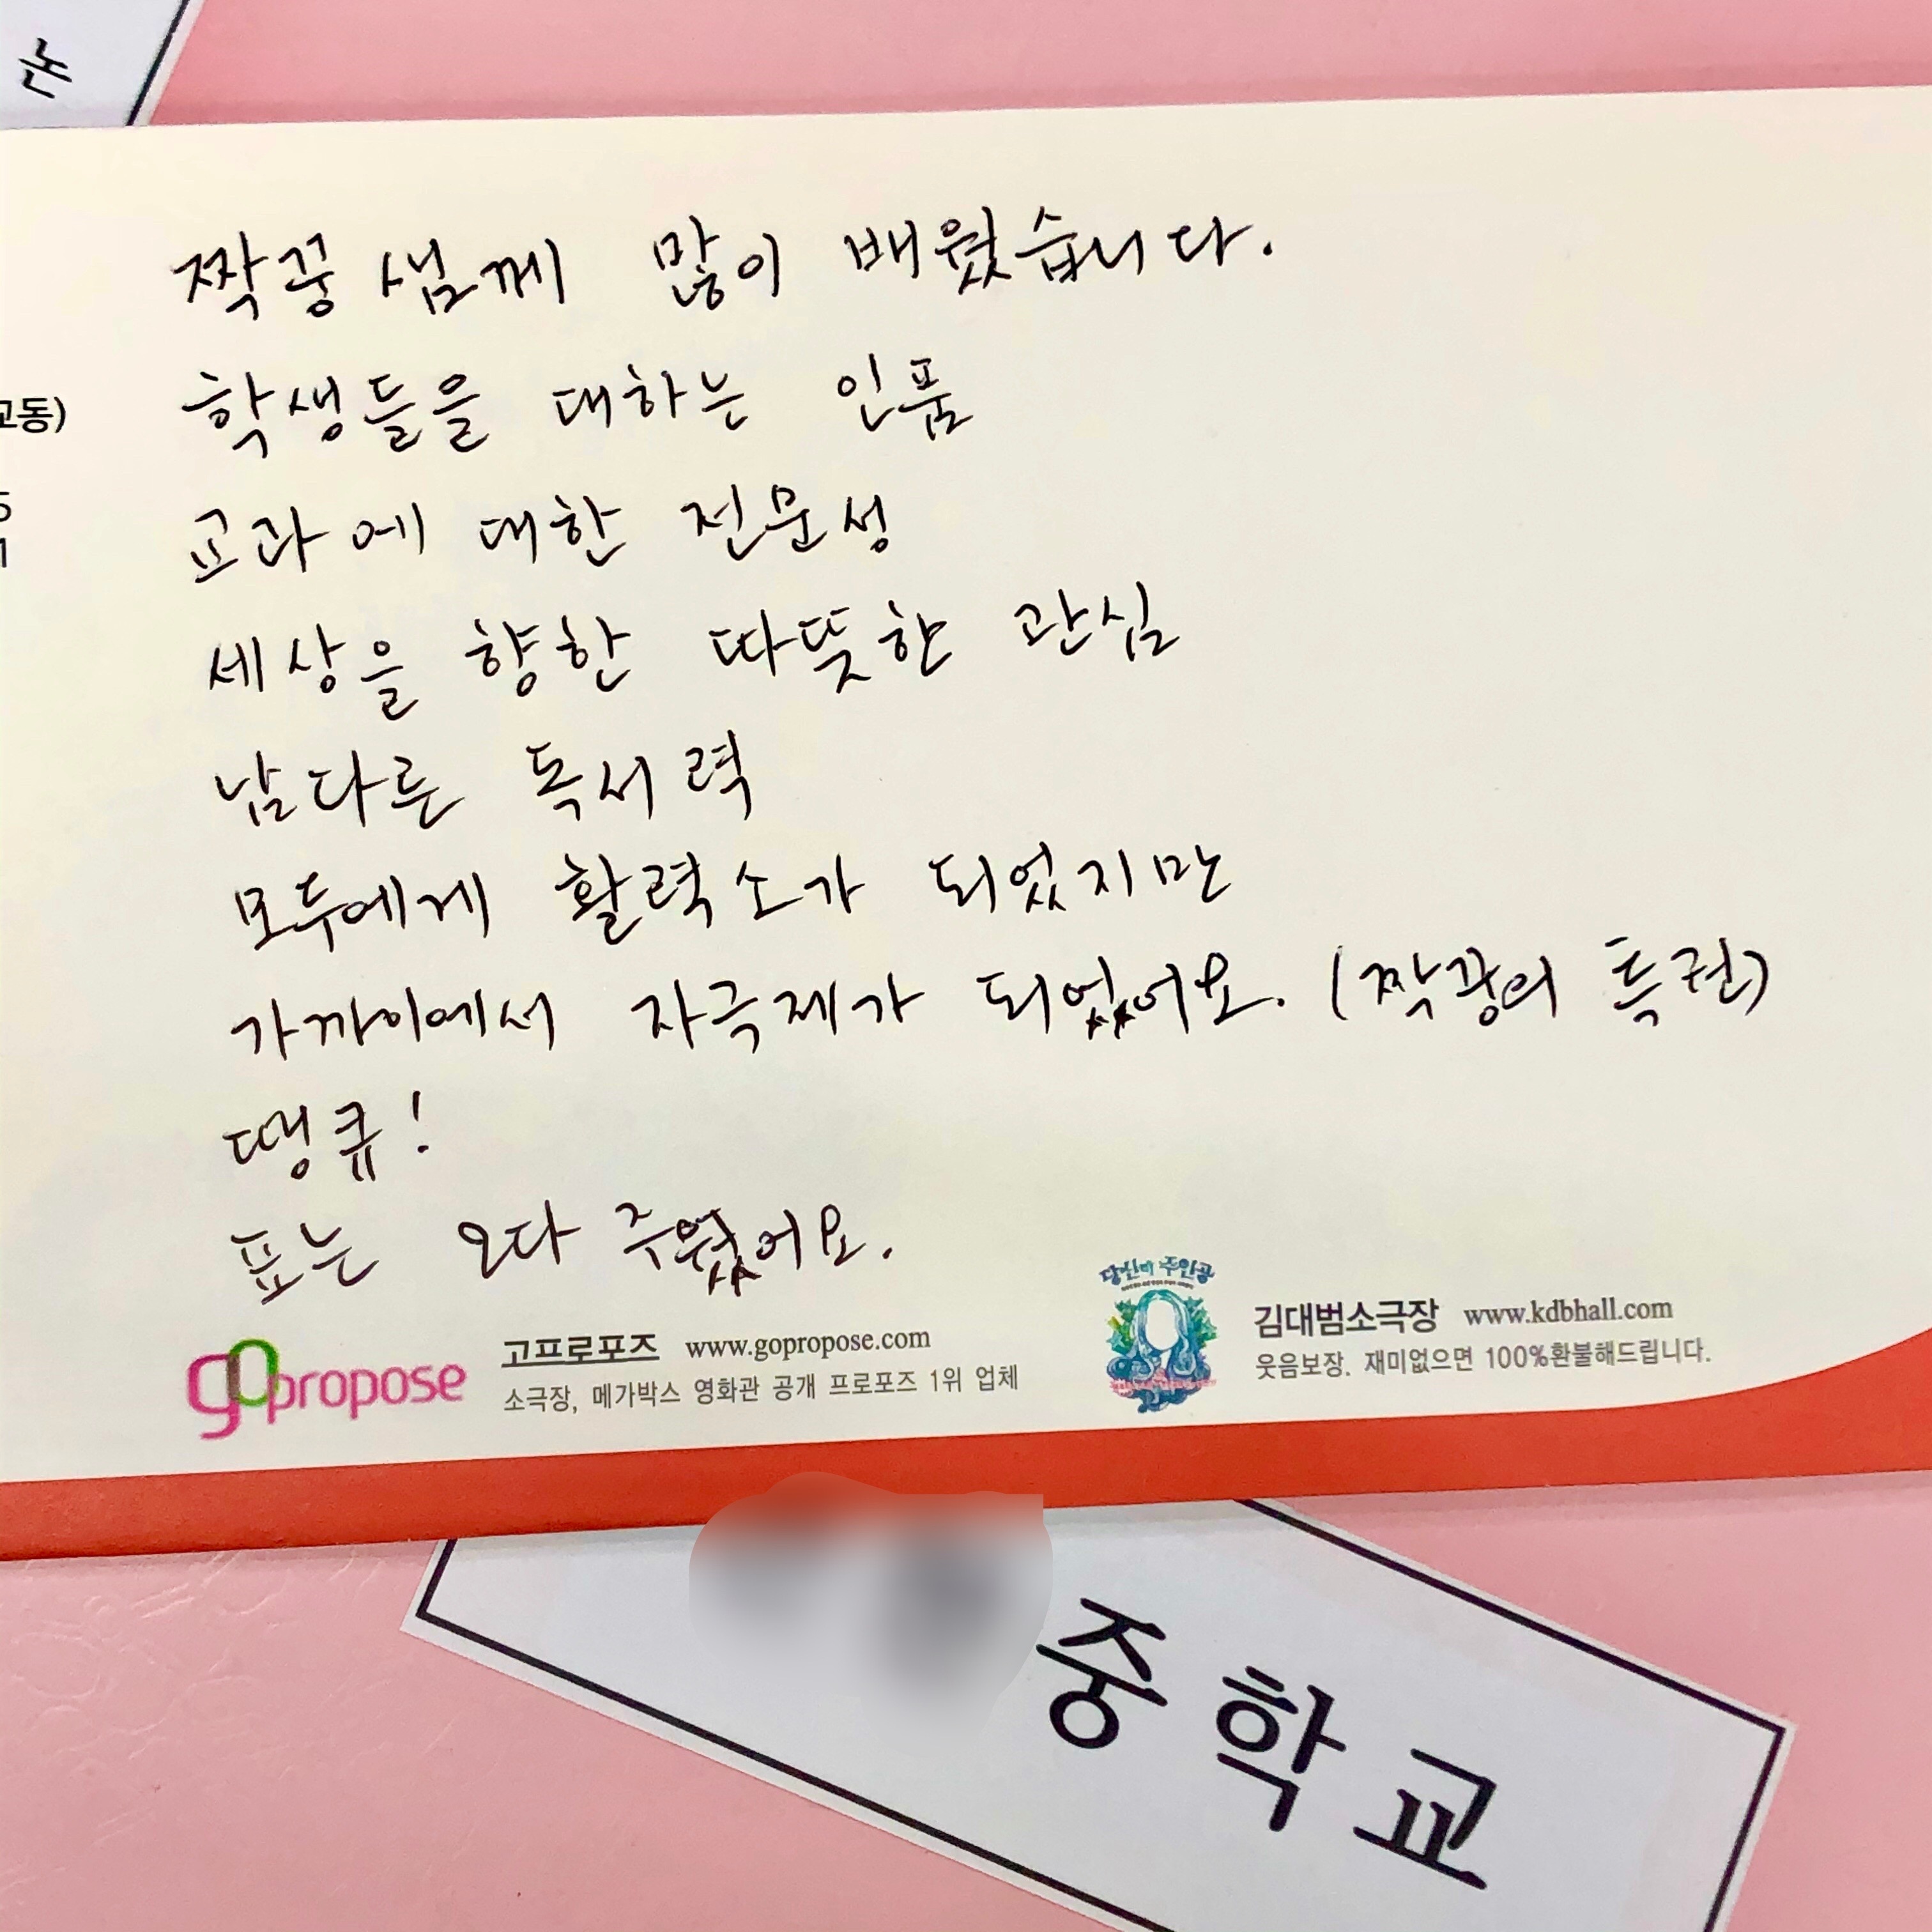 논
교동)
5
1
짝꿍 샘께 많이 배웠습니다.
학생들을 대하는 인품
교과에 대한 전문성
세상을 향한 따뜻한 관심
남다른 독서력
모두에게 활력소가 되었지만
가까이에서 자극제가 되었어요. (짝꿍의 특권)
땡큐!
표는 오다 주웠어요.
gopropose
고프로포즈 www.gopropose.com
소극장, 메가박스 영화관 공개 프로포즈 1위 업체
당신이 주인공
김대범소극장 www.kdbhall.com
웃음보장. 재미없으면 100%환불해드립니다.
중학교